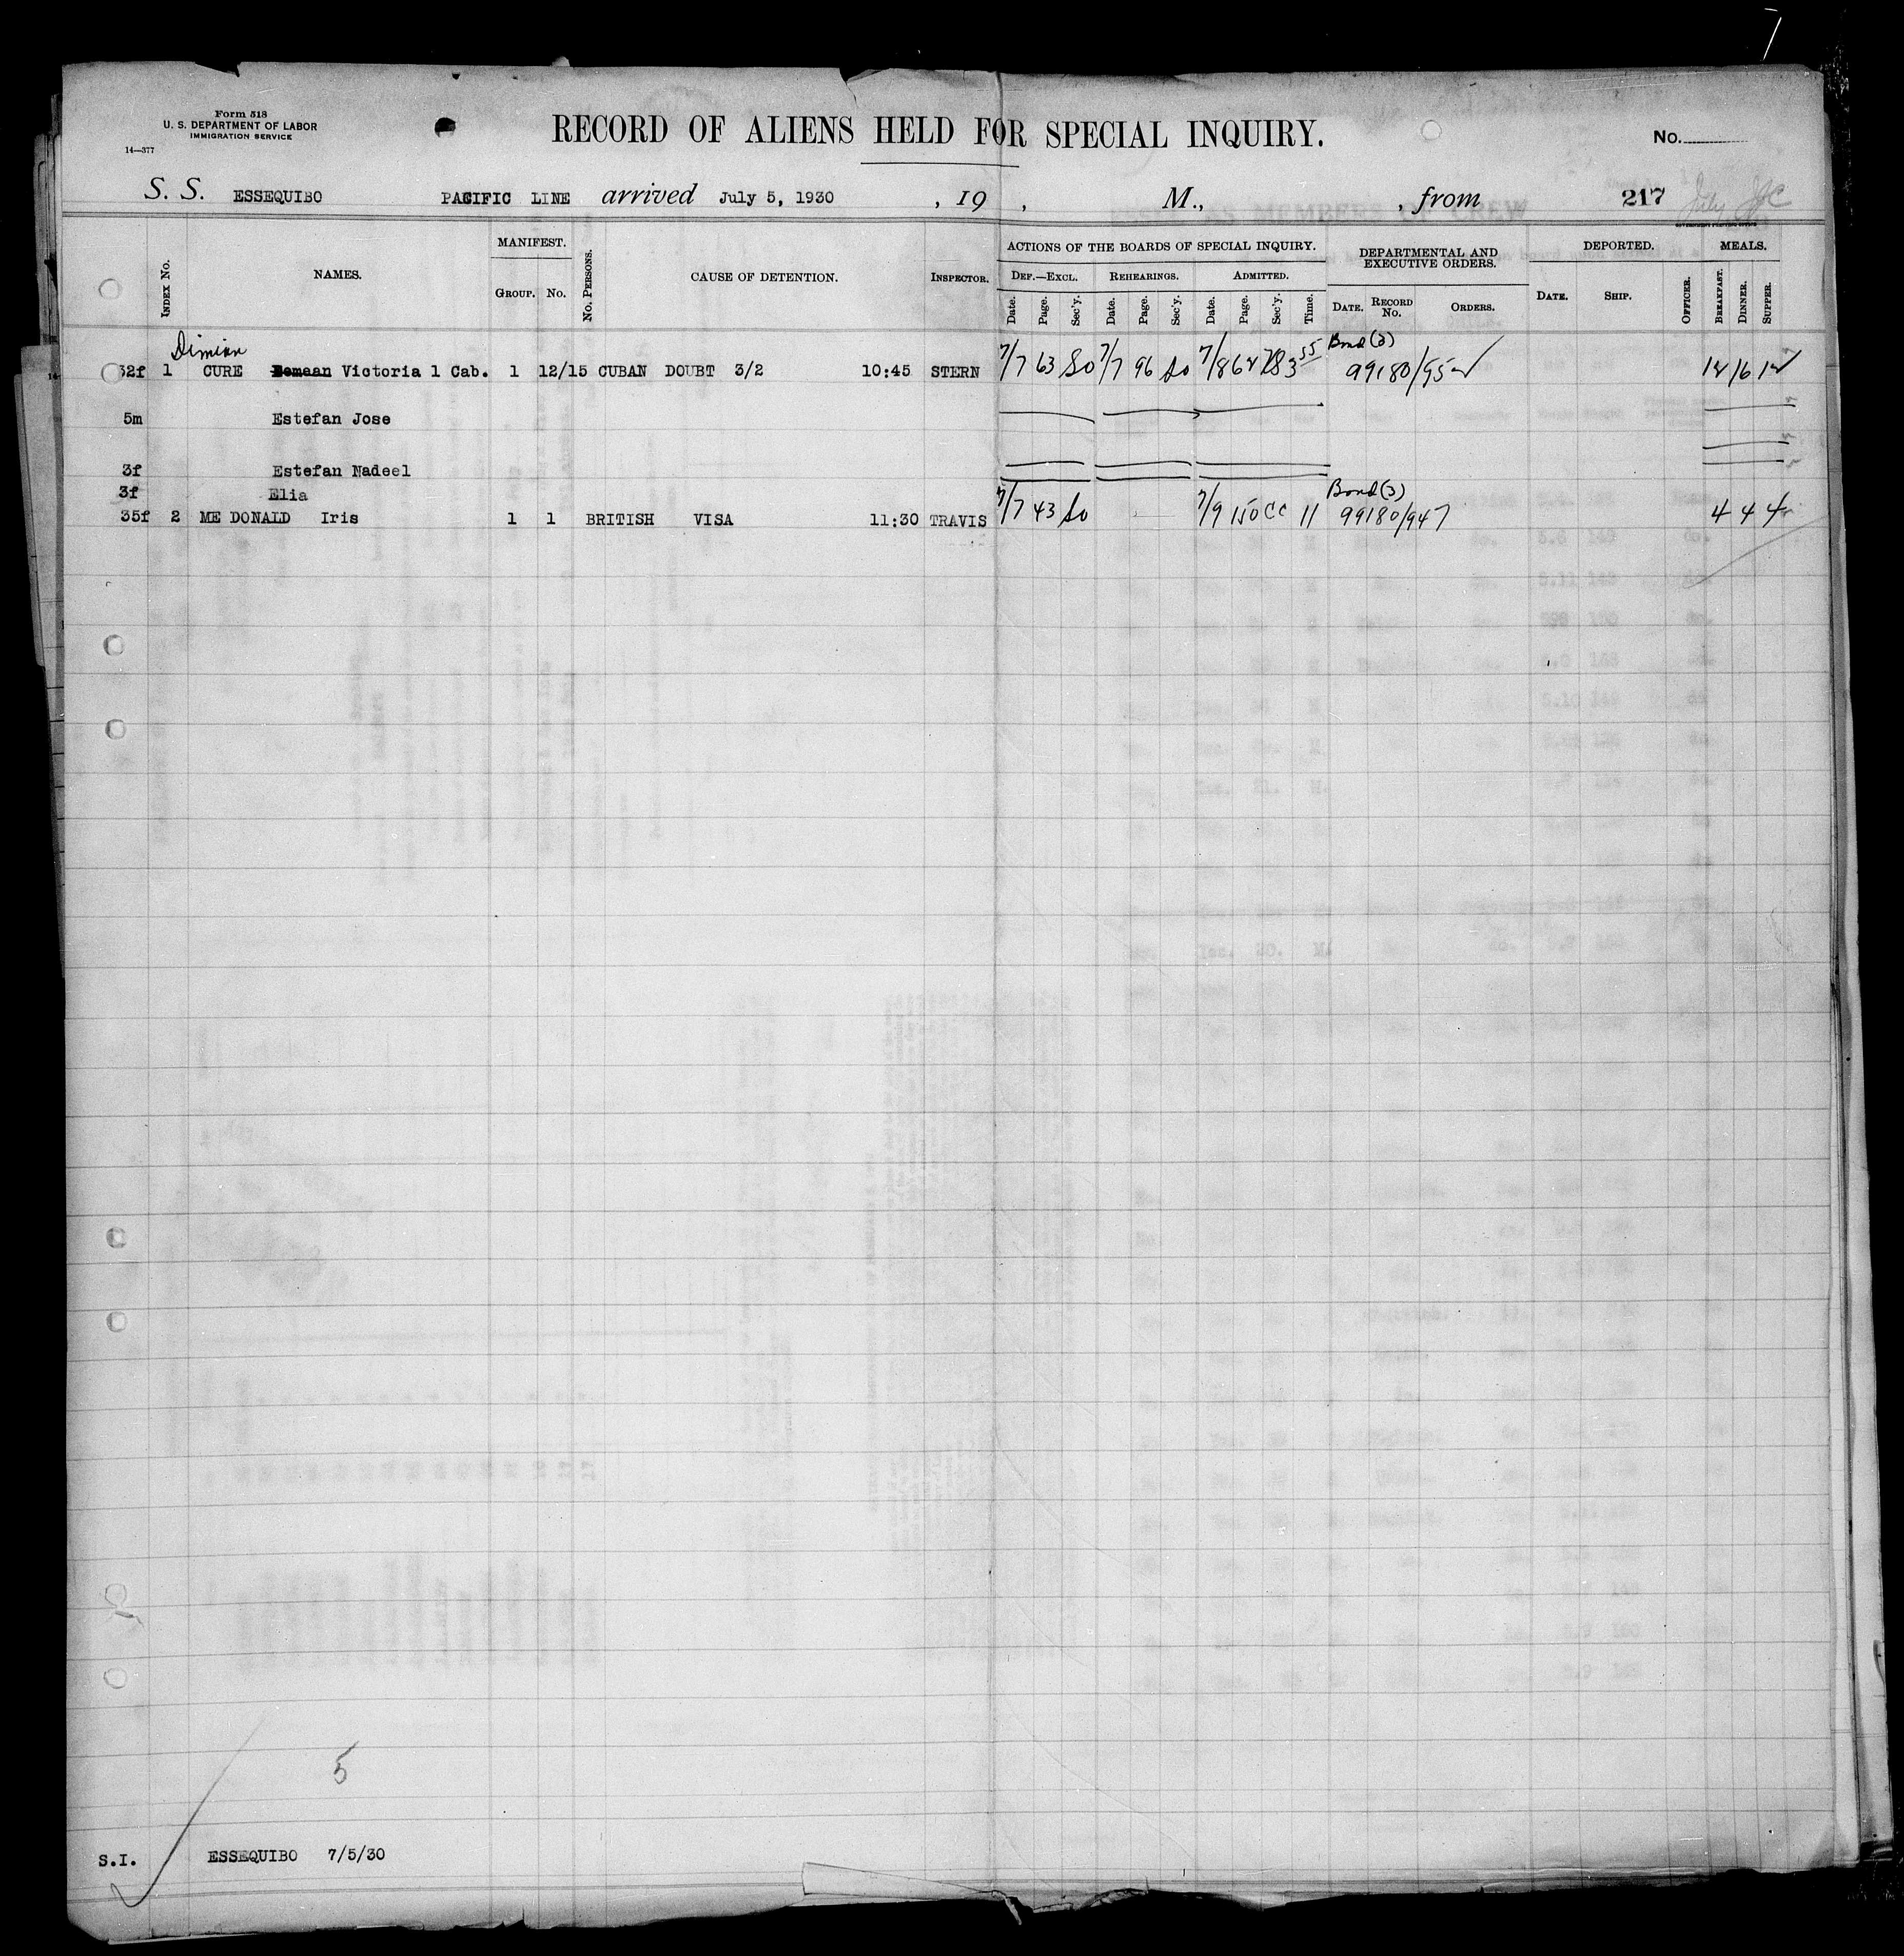 Form 518
U. S. DEPARTMENT OF LABOR
IMMIGRATION SERVICE
14—377
RECORD OF ALIENS HELD FOR SPECIAL INQUIRY.
No.
S. S. ESSEQUIBO PACIFIC LINE arrived July 5, 1930 , 19 , M., , from 217
MANIFEST. ACTIONS OF THE BOARDS OF SPECIAL INQUIRY. DEPARTMENTAL AND EXECUTIVE ORDERS. DEPORTED. MEALS.
INDEX No. NAMES. GROUP. No. No. PERSONS. CAUSE OF DETENTION. INSPECTOR. DEF.—EXCL. REHEARINGS. ADMITTED.
Date. Page. Sec'y. Date. Page. Sec'y. Date. Page. Sec'y. Time. DATE. RECORD No. ORDERS. DATE. SHIP. OFFICER. BREAKFAST. DINNER. SUPPER.
Dimian Bond (3)
32f 1 CURE Victoria 1 Cab. 1 12/15 CUBAN DOUBT 3/2 10:45 STERN 7/7 63 So 7/7 96 So 7/8 3 55 99180/95
5m Estefan Jose
3f Estefan Nadeel
3f Elia Bond (3)
35f 2 ME DONALD Iris 1 1 BRITISH VISA 11:30 TRAVIS 7/7 43 So 7/9 150 CC 11 99180/947 4 4 4
5
S.I. ESSEQUIBO 7/5/30